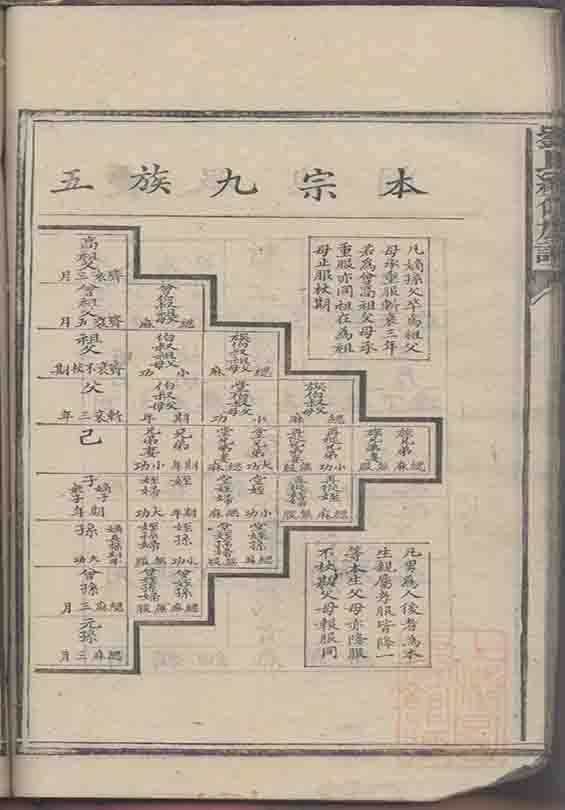 本宗九族五
凡嫡孫父卒為祖父
母承重服斬衰三年
若為曾高祖父母承
重服亦同祖在為祖
母止服杖期
高祖父
齊衰三月
曾祖父
齊衰五月
曾伯叔祖父母
緦麻
祖父
齊衰不杖期
伯叔祖父母
小功
族伯叔祖父母
緦麻
父
斬衰三年
伯叔父母
期年
堂伯叔父母
小功
族伯叔父母
緦麻
己
兄弟
期年
兄弟妻
小功
堂兄弟
大功
堂兄弟妻
緦麻
再從兄弟
小功
再從兄弟妻
無服
族兄弟
緦麻
族兄弟妻
無服
子
嫡子
衆子
期年
姪
期年
姪婦
大功
堂姪
小功
堂姪婦
緦麻
再從姪
緦麻
再從姪婦
無服
孫
大功
姪孫
小功
姪孫婦
緦麻
堂姪孫
緦麻
堂姪孫婦
無服
曾孫
緦麻三月
曾姪孫
緦麻
曾姪孫婦
無服
元孫
緦麻三月
凡男為人後者為本
生親屬孝服皆降一
等本生父母亦降服
不杖期父母報服同